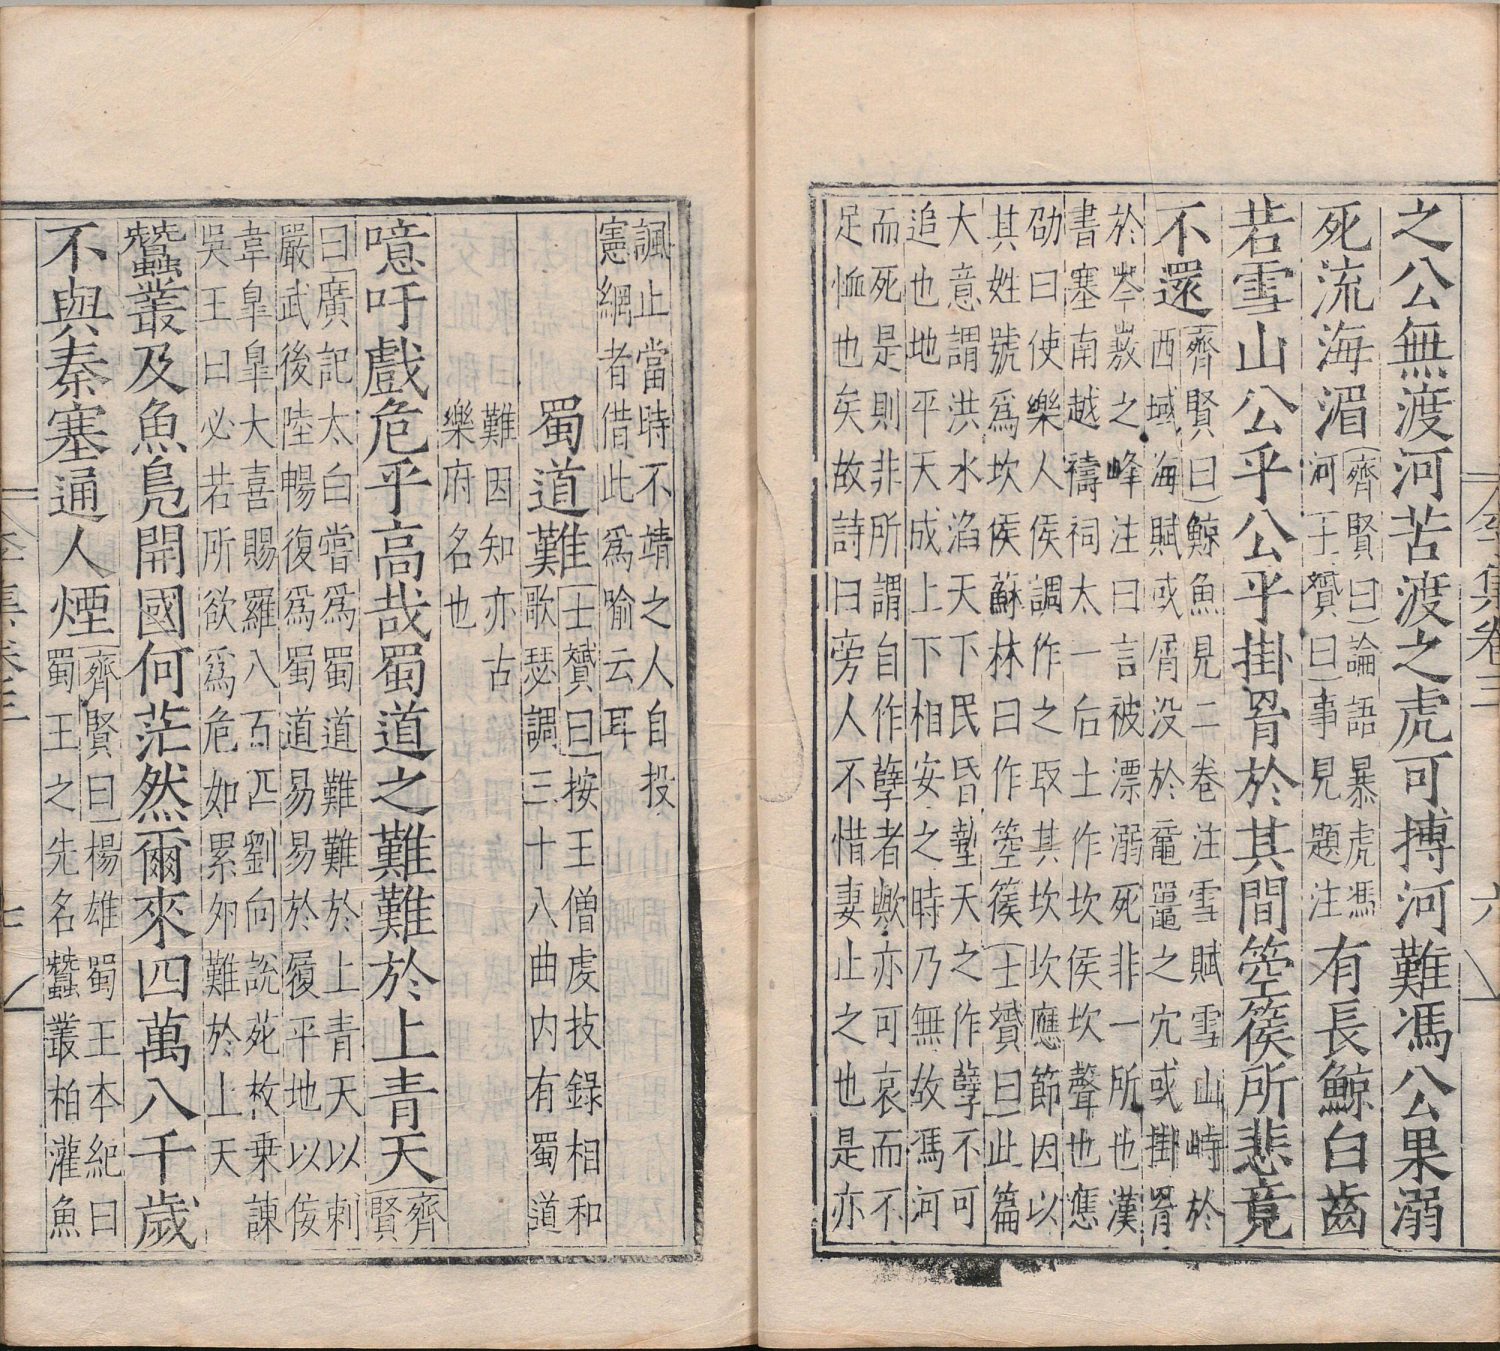 之公無渡河苦渡之虎可搏河難馮公果溺
死流海湄
齊賢曰論語暴虎馮
河士贇曰事見題注
有長鯨白齒
若雪山公乎公乎掛罥於其間箜篌所悲竟
不還
齊賢曰鯨魚見二卷注雪賦雪山峙於
西域海賦或屑没於黿鼉之宂或掛罥
於岑嶅之峰注曰言被漂溺死非一所也漢
書塞南越禱祠太一后土作坎侯坎聲也應
劭曰使樂人侯調作之取其坎坎應節因以
其姓號爲坎侯蘇林曰作箜篌士贇曰此篇
大意謂洪水滔天下民昏墊天之作孽不可
追也地平天成上下相安之時乃無故馮河
而死是則非所謂自作孽者歟亦可哀而不
足恤也矣故詩曰旁人不惜妻止之也是亦
李集卷三
六
諷止當時不靖之人自投
憲網者借此爲喻云耳
蜀道難
士贇曰按王僧虔技錄相和
歌瑟調三十八曲内有蜀道
難因知亦古
樂府名也
噫吁戲危乎高哉蜀道之難難於上青天
齊
賢
曰廣記太白嘗爲蜀道難難於上青天以刺
嚴武後陸暢復爲蜀道易易於履平地以佞
韋皐皐大喜賜羅八百匹劉向說苑枚乗諫
吳王曰必若所欲爲危如累夘難於上天
蠶叢及魚鳬開國何茫然爾來四萬八千歲
不與秦塞通人煙
齊賢曰楊雄蜀王本紀曰
蜀王之先名蠶叢柏灌魚